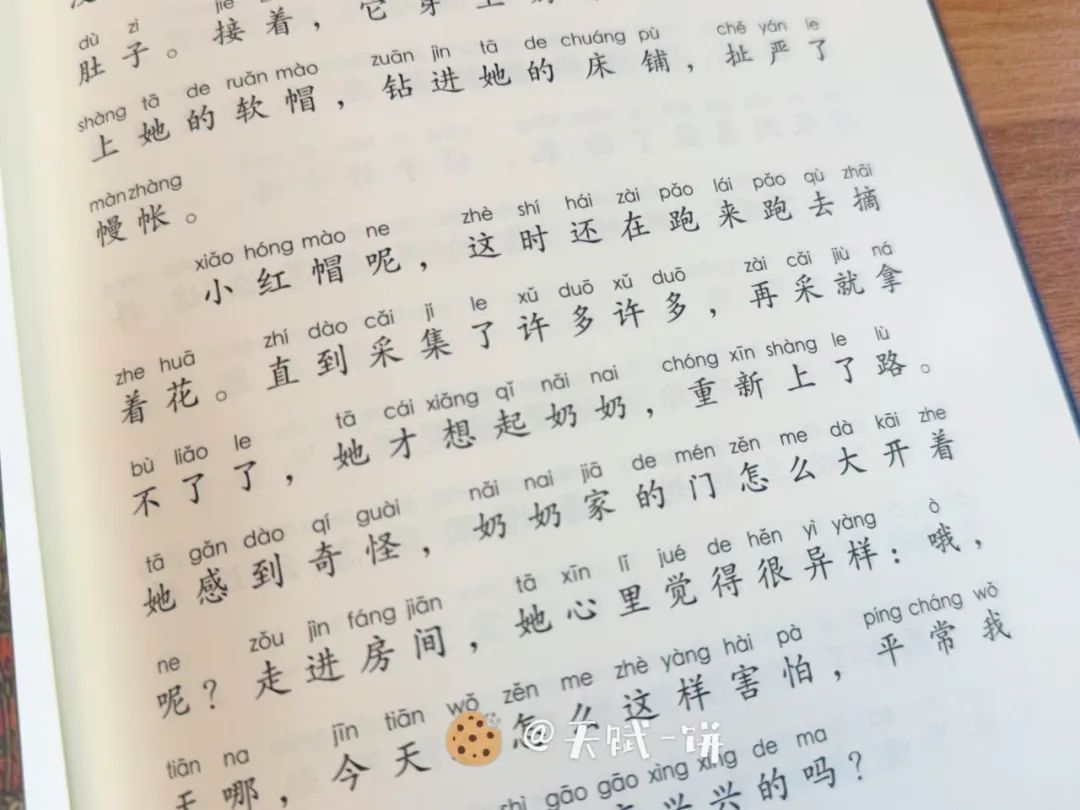 dù zi jiē
肚子。接着，它穿上
shàng tā de ruǎn mào zuān jìn tā de chuáng pù chě yán le
上她的软帽，钻进她的床铺，扯严了
màn zhàng
幔帐。
xiǎo hóng mào ne zhè shí hái zài pǎo lái pǎo qù zhāi
小红帽呢，这时还在跑来跑去摘
zhe huā zhí dào cǎi jí le xǔ duō xǔ duō zài cǎi jiù ná
着花。直到采集了许多许多，再采就拿
bù liǎo le tā cái xiǎng qǐ nǎi nai chóng xīn shàng le lù
不了了，她才想起奶奶，重新上了路。
tā gǎn dào qí guài nǎi nai jiā de mén zěn me dà kāi zhe
她感到奇怪，奶奶家的门怎么大开着
ne zǒu jìn fáng jiān tā xīn lǐ jué de hěn yì yàng ò
呢？走进房间，她心里觉得很异样：哦，
tiān na jīn tiān wǒ zěn me zhè yàng hài pà píng cháng wǒ
天哪，今天 怎么这样害怕，平常我
shì gāo gāo xìng xìng de ma
兴兴的吗？
@天赋一饼